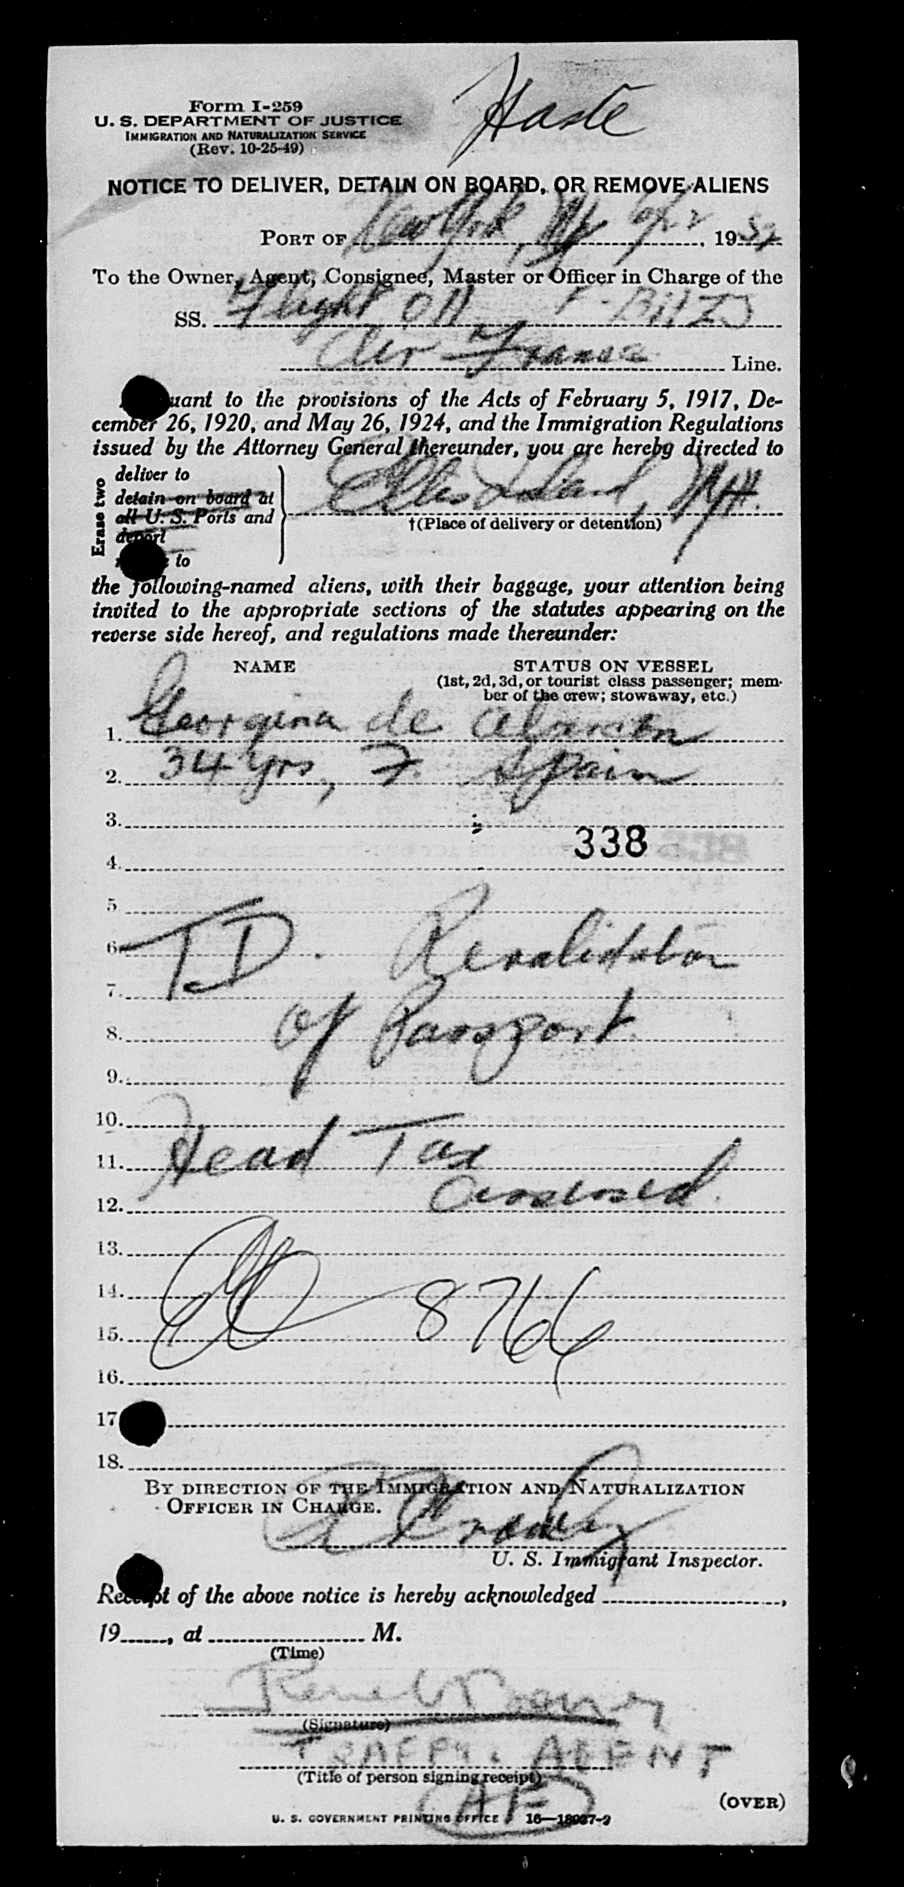 Haste
Form I-259
U. S. DEPARTMENT OF JUSTICE
IMMIGRATION AND NATURALIZATION SERVICE
(Rev. 10-25-49)
NOTICE TO DELIVER, DETAIN ON BOARD, OR REMOVE ALIENS
PORT OF New York, NY 1952
To the Owner, Agent, Consignee, Master or Officer in Charge of the
SS. Flight 011
Air France Line.
uant to the provisions of the Acts of February 5, 1917, De-
cember 26, 1920, and May 26, 1924, and the Immigration Regulations
issued by the Attorney General thereunder, you are hereby directed to
Erase two
deliver to
detain on board at
all U. S. Ports and
deport
to
Ellis Island, NYH.
†(Place of delivery or detention)
the following-named aliens, with their baggage, your attention being
invited to the appropriate sections of the statutes appearing on the
reverse side hereof, and regulations made thereunder:
NAME STATUS ON VESSEL
(1st, 2d, 3d, or tourist class passenger; mem-
ber of the crew; stowaway, etc.)
1. Georgina de
2. 34 yrs, F. Spain
3.
338
4.
5
6. T.D. Revalidation
7.
8. of Passport.
9.
10.
11. Head Tax
12.
13.
14.
15. 8766
16.
17
18.
BY DIRECTION OF THE IMMIGRATION AND NATURALIZATION
OFFICER IN CHARGE.
U. S. Immigrant Inspector.
Receipt of the above notice is hereby acknowledged ,
19 , at M.
(Time)
(Signature)
TRAFFIC AGENT
(Title of person signing receipt)
AF
(OVER)
U. S. GOVERNMENT PRINTING OFFICE 16—18037-2